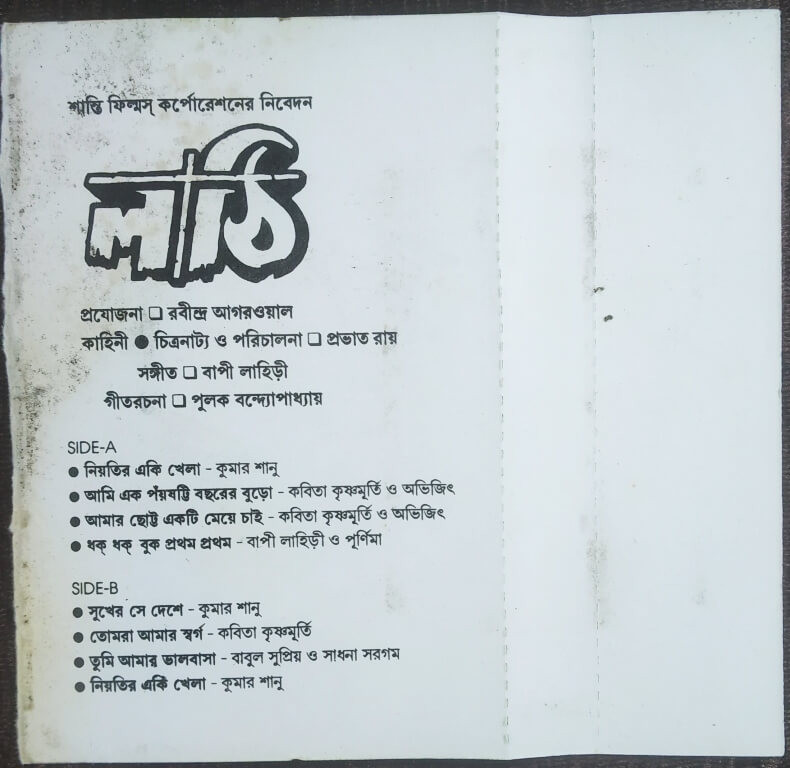 শান্তি ফিল্মস্ কর্পোরেশনের নিবেদন
লাঠি
প্রযোজনা □ রবীন্দ্র আগরওয়াল
কাহিনী ● চিত্রনাট্য ও পরিচালনা □ প্রভাত রায়
সঙ্গীত □ বাপী লাহিড়ী
গীতরচনা □ পুলক বন্দ্যোপাধ্যায়
SIDE-A
● নিয়তির একি খেলা - কুমার শানু
● আমি এক পঁয়ষট্টি বছরের বুড়ো - কবিতা কৃষ্ণমূর্তি ও অভিজিৎ
● আমার ছোট্ট একটি মেয়ে চাই - কবিতা কৃষ্ণমূর্তি ও অভিজিৎ
● ধক্ ধক্ বুক প্রথম প্রথম - বাপী লাহিড়ী ও পূর্ণিমা
SIDE-B
● সুখের সে দেশে - কুমার শানু
● তোমরা আমার স্বর্গ - কবিতা কৃষ্ণমূর্তি
● তুমি আমার ভালবাসা - বাবুল সুপ্রিয় ও সাধনা সরগম
● নিয়তির একি খেলা - কুমার শানু